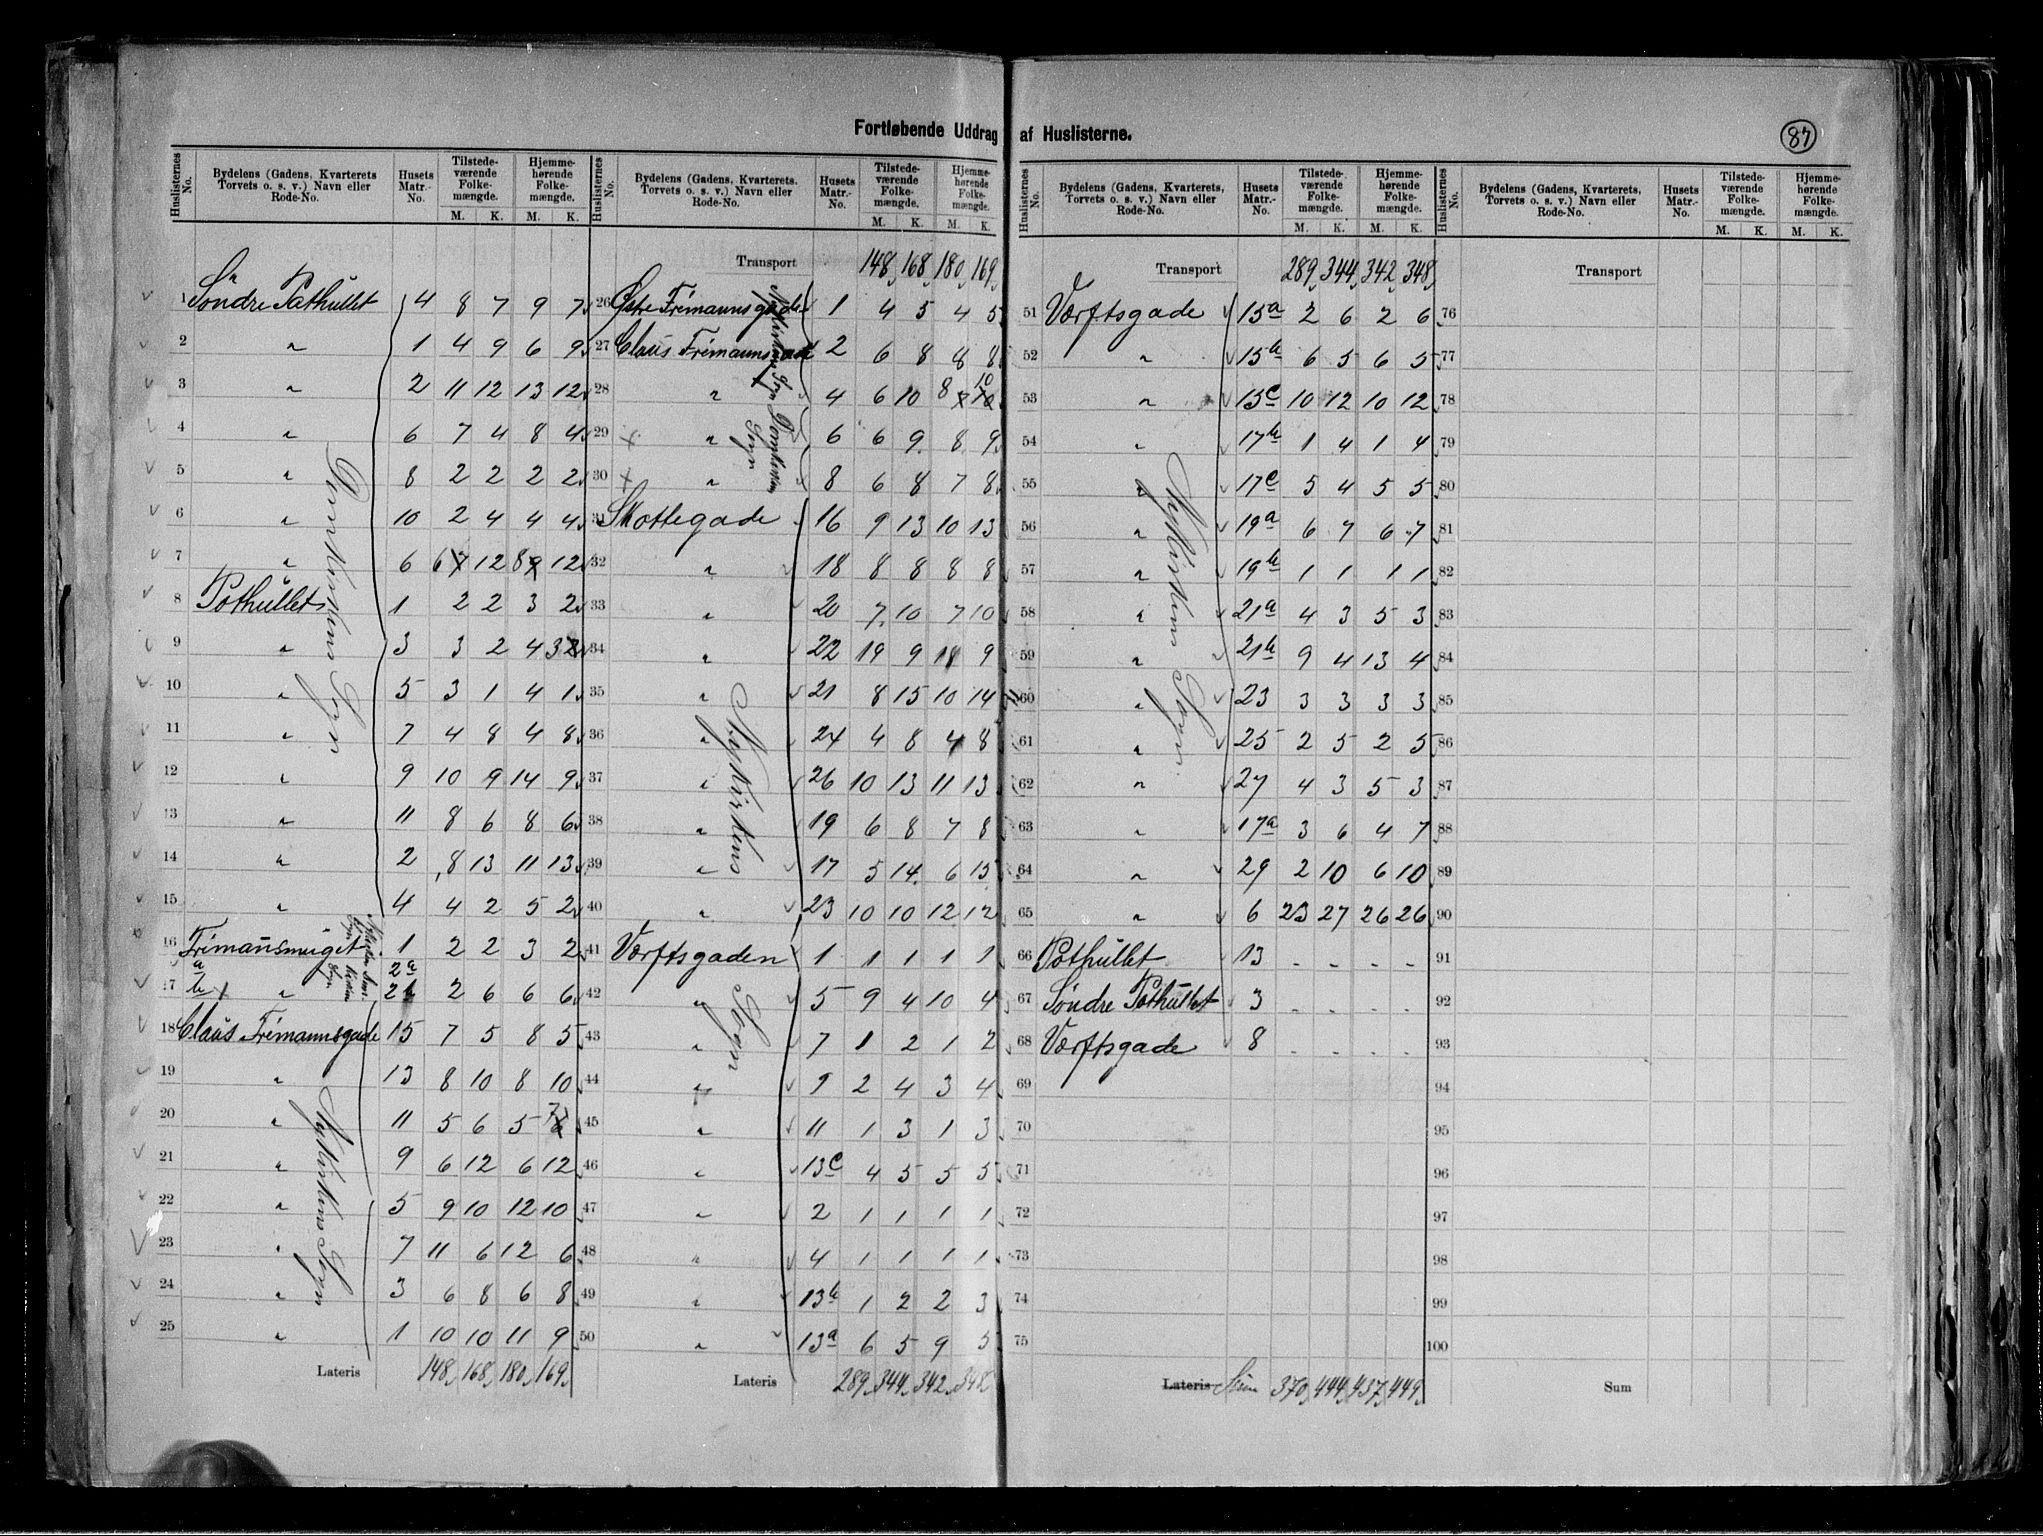 Fortløbende Uddrag af Huslisterne.
87
Huslisternes No. | Bydelens (Gadens, Kvarterets Torvets o. s. v.) Navn eller Rode-No. | Husets Matr.-No. | Tilstedeværende Folkemængde. M. K. | Hjemmehørende Folkemængde. M. K.
1 Søndre Pothullet 4 8 7 9 7
2 " 1 4 9 6 9
3 " 2 11 12 13 12
4 " 6 7 4 8 4
5 " 8 2 2 2 2
6 " 10 2 4 4 4
7 " 6 6 7 12 8 9 12
8 Pothullet 1 2 2 3 2
9 " 3 3 2 4 3 2
10 " 5 3 1 4 1
11 " 7 4 8 4 8
12 " 9 10 9 14 9
13 " 11 8 6 8 6
14 " 2 8 13 11 13
15 " 4 4 2 5 2
16 Frimansmuget 1 2 2 3 2
a 2a
17 b " 2b 2 6 6 6
18 Claus Frimannsgade 15 7 5 8 5
19 " 13 8 10 8 10
20 " 11 5 6 5 7 6
21 " 9 6 12 6 12
22 " 5 9 10 12 10
23 " 7 11 6 12 6
24 " 3 6 8 6 8
25 " 1 10 10 11 9
Lateris 148 168 180 169
Domkirkens Sogn
Nykirkens Sogn
Huslisternes No. | Bydelens (Gadens, Kvarterets. Torvets o. s. v.) Navn eller Rode-No. | Husets Matr.-No. | Tilstedeværende Folkemængde. M. K. | Hjemmehørende Folkemængde. M. K.
Transport 148 168 180 169
26 Østre Frimannsgade 1 4 5 4 5
27 Claus Frimannsgade 2 6 8 8 8
28 " 4 6 10 8 7 10 10
29 " 6 6 9 8 9
30 " 8 6 8 7 8
31 Skottegade 16 9 13 10 13
32 " 18 8 8 8 8
33 " 20 7 10 7 10
34 " 22 19 9 18 9
35 " 21 8 15 10 14
36 " 24 4 8 4 8
37 " 26 10 13 11 13
38 " 19 6 8 7 8
39 " 17 5 14 6 15
40 " 23 10 10 12 12
41 Værftsgaden 1 1 1 1 1
42 " 5 9 4 10 4
43 " 7 1 2 1 2
44 " 9 2 4 3 4
45 " 11 1 3 1 3
46 " 13c 4 5 5 5
47 " 2 1 1 1 1
48 " 4 1 1 1 1
49 " 13b 1 2 2 3
50 " 13a 6 5 9 5
Lateris 289 344 342 348
Nykirkens Sogn
Domkirkens Sogn
Nykirkens Sogn
Huslisternes No. | Bydelens (Gadens, Kvarterets, Torvets o. s. v.) Navn eller Rode-No. | Husets Matr.-No. | Tilstedeværende Folkemængde. M. K. | Hjemmehørende Folkemængde. M. K.
Transport 289 344 342 348
51 Værftsgade 15a 2 6 2 6
52 " 15b 6 5 6 5
53 " 15c 10 12 10 12
54 " 17b 1 4 1 4
55 " 17c 5 4 5 5
56 " 19a 6 7 6 7
57 " 19b 1 1 1 1
58 " 21a 4 3 5 3
59 " 21b 9 4 13 4
60 " 23 3 3 3 3
61 " 25 2 5 2 5
62 " 27 4 3 5 3
63 " 17a 3 6 4 7
64 " 29 2 10 6 10
65 " 6 23 27 26 26
66 Pothullet 13 - - - -
67 Søndre Pothullet 3 - - - -
68 Værftsgade 8 - - - -
69
70
71
72
73
74
75
Lateris Sum 370 444 437 449
Nykirkens Sogn
Huslisternes No. | Bydelens (Gadens, Kvarterets, Torvets o. s. v.) Navn eller Rode-No. | Husets Matr.-No. | Tilstedeværende Folkemængde. M. K. | Hjemmehørende Folkemængde. M. K.
Transport
76
77
78
79
80
81
82
83
84
85
86
87
88
89
90
91
92
93
94
95
96
97
98
99
100
Sum